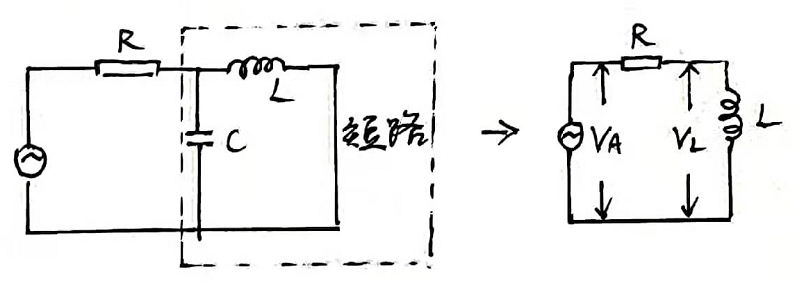 R
L
C
短路
R
VA
VL
L